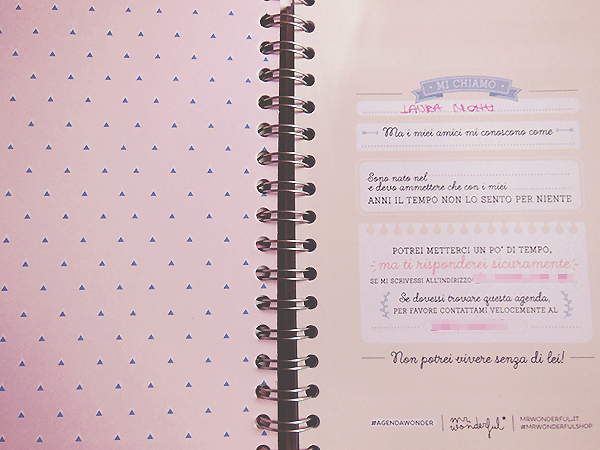 MI CHIAMO
LAURA
Ma i miei amici mi conoscono come
Sono nato nel
e devo ammettere che con i miei
ANNI IL TEMPO NON LO SENTO PER NIENTE
POTREI METTERCI UN PO' DI TEMPO,
ma ti risponderei sicuramente
SE MI SCRIVESSI ALL'INDIRIZZO
Se dovessi trovare questa agenda,
PER FAVORE CONTATTAMI VELOCEMENTE AL
Non potrei vivere senza di lei!
#AGENDAWONDER
mr.
wonderful*
MRWONDERFUL.IT
#MRWONDERFULSHOP